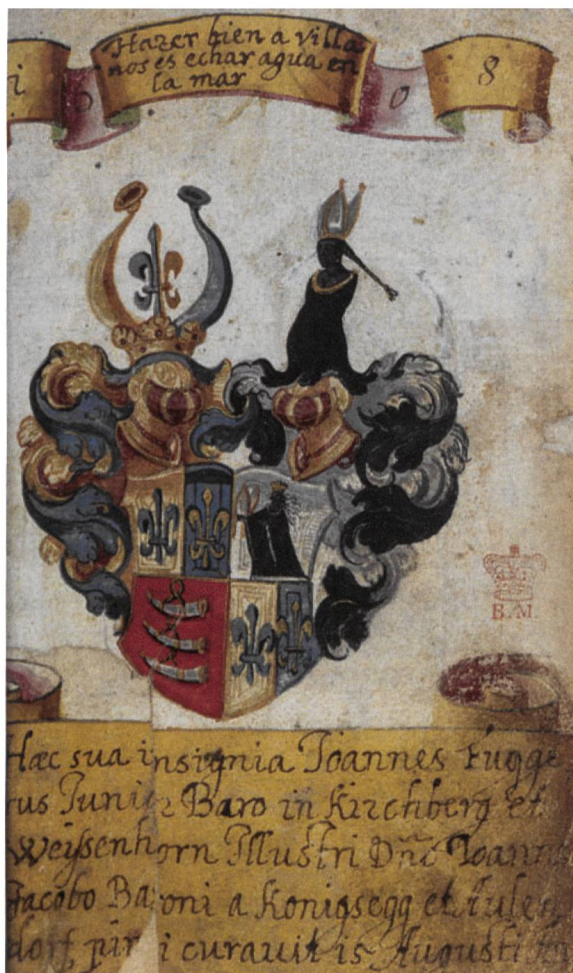 i 6 0 8
Hazer bien a villa
nos es echar agua en
la mar
B.M.
Hæc sua insignia Joannes Fugge
rus Junior Baro in Kirchberg et
Weyssenhorn Illustri Dño Joanni
Jacobo Baroni a Konigsegg et Aulen
dorf, pingi curavit is Augusti